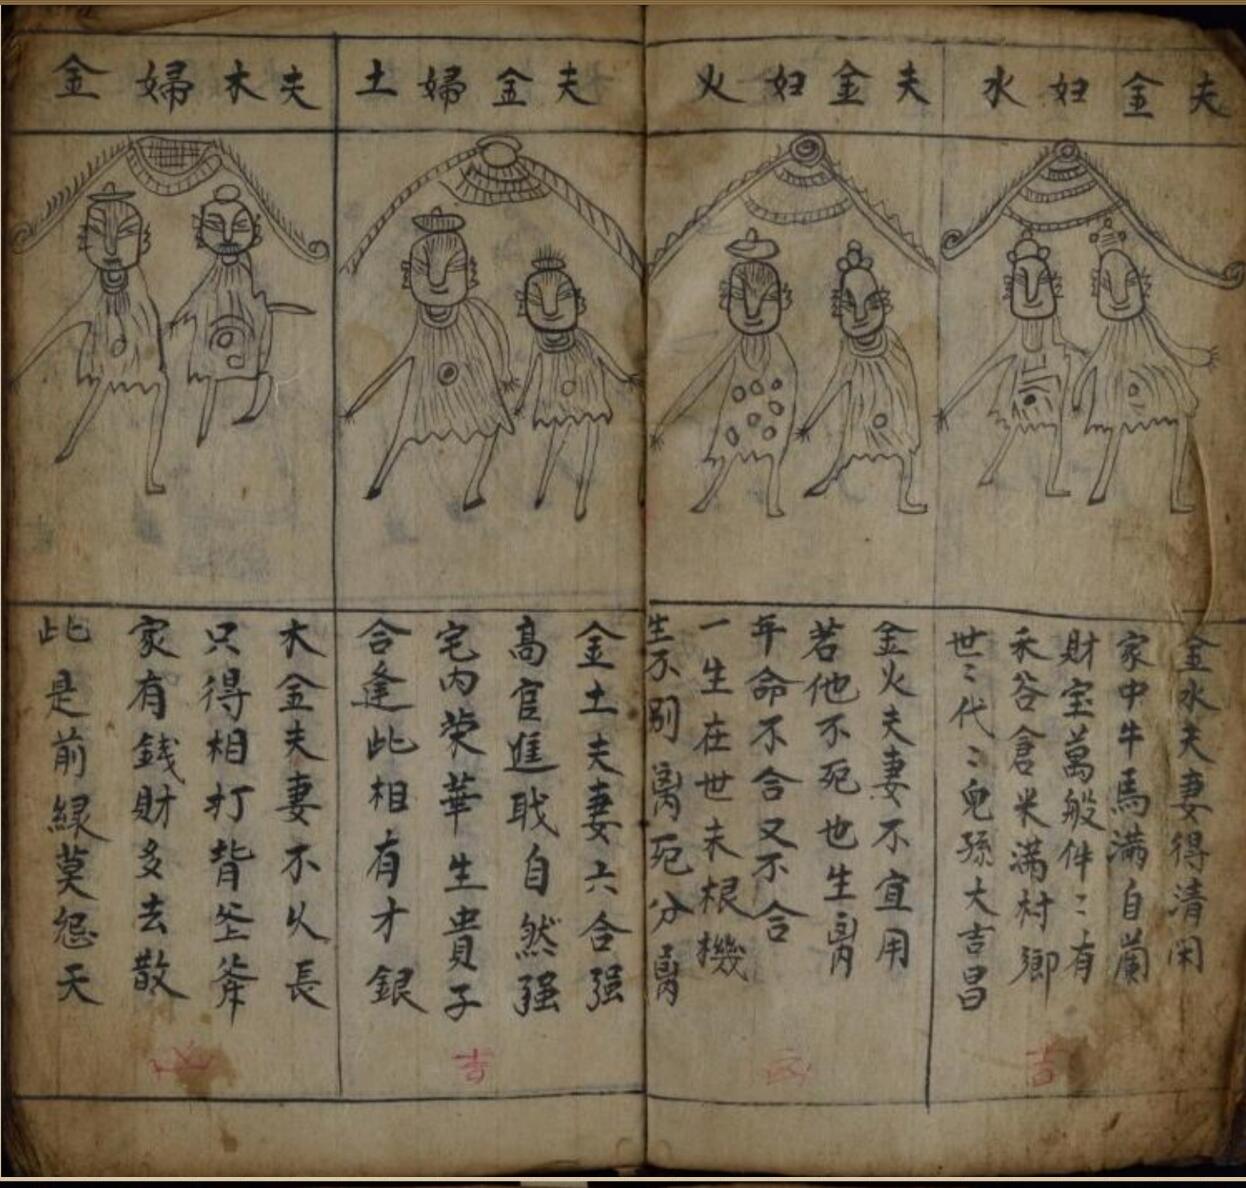 夫金妇水
金水夫妻得清闲
家中牛馬满自蘭
財宝萬般件〻有
禾谷倉米满村鄉
世〻代〻兒孫大吉昌
吉
夫金妇火
金火夫妻不宜用
若他不死也生离
年命不合又不合
一生在世未根機
生不别离死分离
凶
夫金婦土
金土夫妻六合强
高官進职自然强
宅内荣華生貴子
合逢此相有才銀
吉
夫木婦金
木金夫妻不久長
只得相打背
家有錢財多去散
此是前緑莫怨天
凶